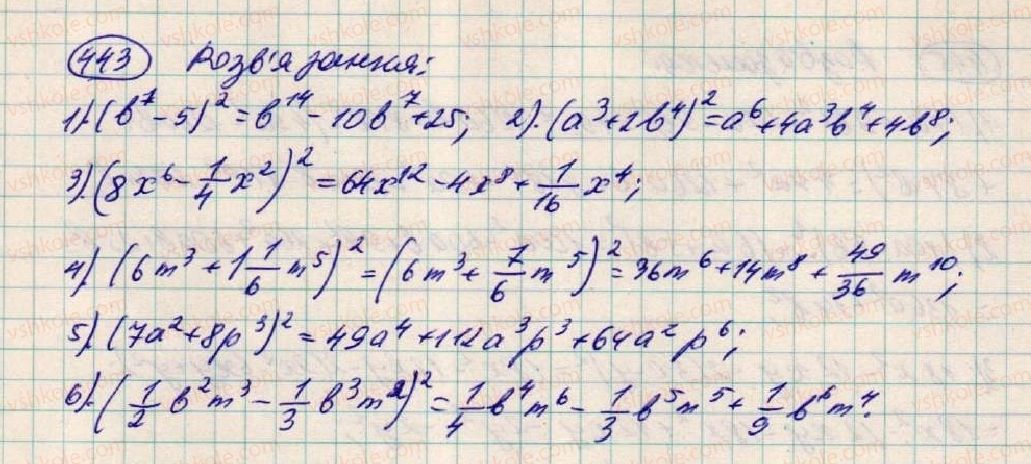 443 Розв'язання:
1).(b⁷ - 5)² = b¹⁴ - 10b⁷ + 25; 2).(a³ + 2b⁴)² = a⁶ + 4a³b⁴ + 4b⁸;
3).(8x⁶ - 1/4 x²)² = 64x¹² - 4x⁸ + 1/16 x⁴;
4).(6m³ + 1 1/6 m⁵)² = (6m³ + 7/6 m⁵)² = 36m⁶ + 14m⁸ + 49/36 m¹⁰;
5).(7a² + 8p³)² = 49a⁴ + 112a³p³ + 64a²p⁶;
6).(1/2 b²m³ - 1/3 b³m²)² = 1/4 b⁴m⁶ - 1/3 b⁵m⁵ + 1/9 b⁶m⁴.